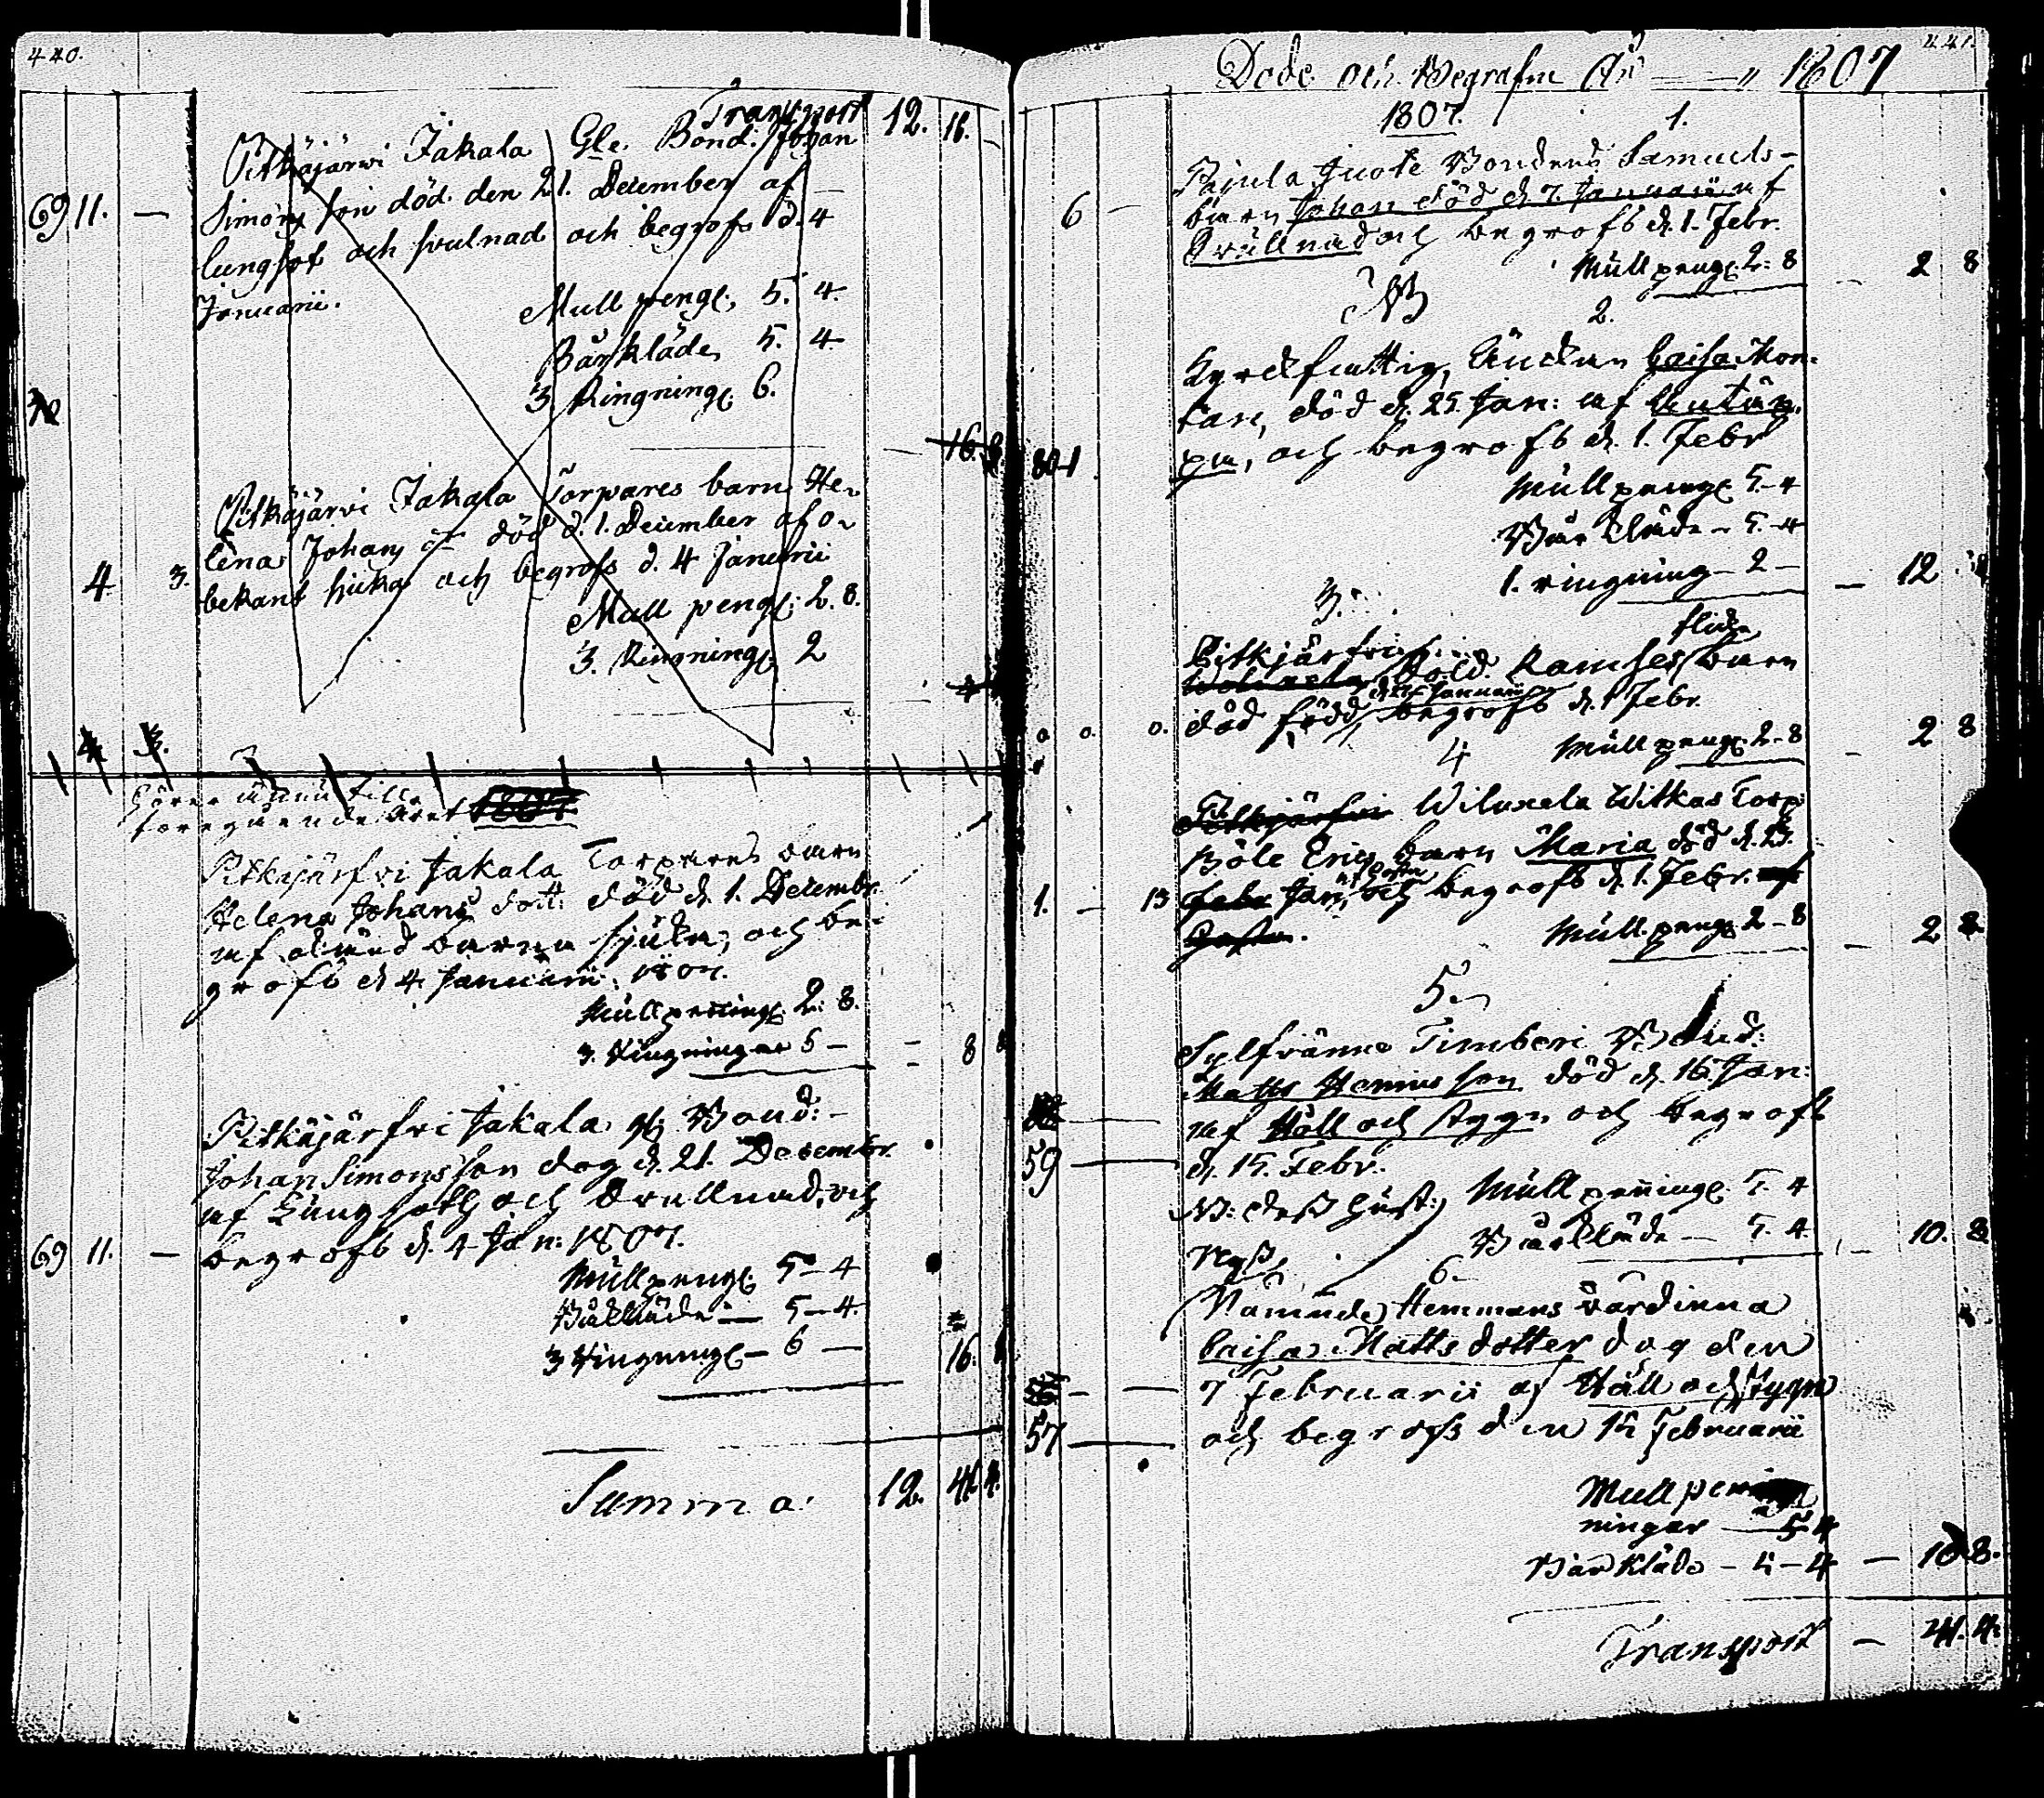 440.
Transport 12. 16. -
Pitkäjärwi Jakala Gle. Bond: Johan
Simons son död. den 21. December af
69 11. - lungsot och svulnad och begrofs d. 4
Januarii.
Mull peng: 5. 4.
Bårkläde 5. 4.
3 Ringning: 6.
16. 8.
Pitkäjärwi Jakala Torpares barn He-
lena Johans död d. 1. December af o-
4 3. bekant siuka och begrofs d. 4 Januarii
Mull peng: 2. 8.
3. Ringning: 2
4 3.
hörer ännu till
föregående året 1807
Pitkäjärfvi Jakala Torpares barn
Helena Johans dott: död d. 1. Decembr.
af okänd barna sjuka, och be-
grofs d 4 Januarii 1807.
Mull pening: 2: 8.
3. Ringningar 5 -
- 8
Pitkäjärfvi Jakala gl: Bond:
Johan Simonsson dog d. 21. December.
af Lungsoth och Svullnad, och
69 11. - begrofs d. 4 Jan: 1807.
Mull peng: 5 - 4
Bårkläde - 5 - 4.
3 Ringning: - 6 -
16.
Summa: 12. 41. 4.
441.
Döde och Begrafne År - " 1807
1807.
1.
Pajula Juote Bondens Samuels-
6 - barn Johan död d. 7. Januarii af
Svullnad och begrofs d. 1. Febr.
Mull peng: 2: 8 - 2 8
2.
Kyrckfattig, Änckan Caisa Mon-
tan, död d. 25. Jan: af
80 1 och begrofs d. 1. Febr
Mull pening: 5 - 4
Bårkläde - 5 - 4
1. ringning - 2 - - 12
3.
flicke
Pitkjärfvi Sold. Ramses barn
d. Januarii
0 0. 0. död född begrofs d. 1 Febr.
Mull peng: 2 - 8 - 2 8
4
Pitkjärfvi Wiluxela Witkas Torp:
Böle Erics barn Maria död d. 23.
1. - 13 Febr Jan: och begrofs d. 1. Febr. af
Mull peng: 2 - 8 - 2 8
5.
Sylfvänne Timberi Bond:
Matts son död d. 16. Jan:
af Håll och stygn och begrofs
59 - d. 15. Febr.
NB: dess hust: Mull pening: 5. 4
Bårkläde - 5. 4. - 10. 8
6.
Namnde Hemmans värdinna
Caisa Matts dotter dog den
7 Februarii af Håll och stygn
57 - och begrofs den 15 Februarii
Mull pen
ningar - 5 4
Bårkläde - 5 - 4 - 10 8.
Transport - 41. 4.